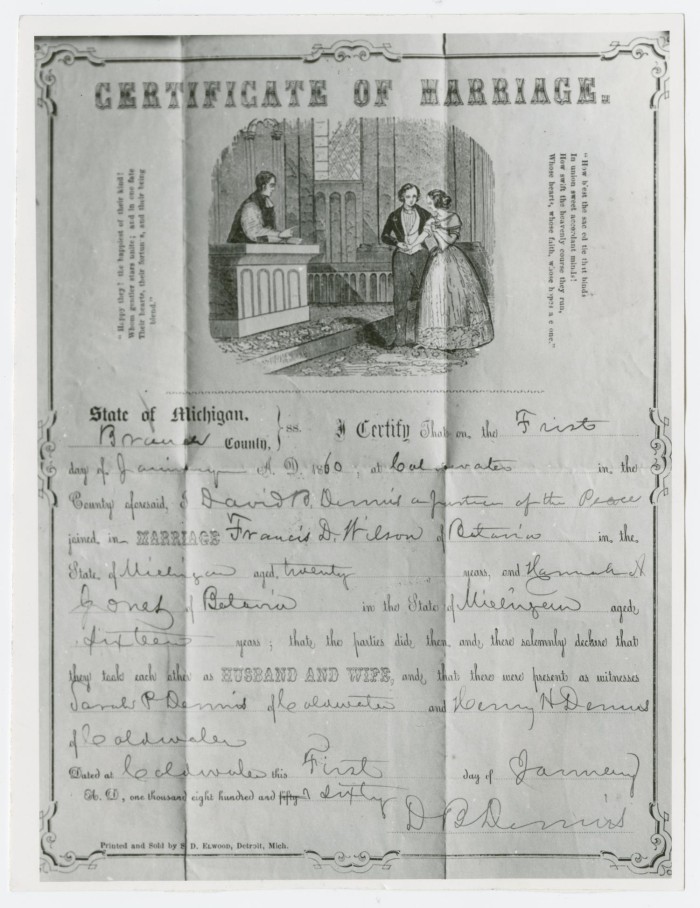 CERTIFICATE OF MARRIAGE.
"Happy they! the happiest of their kind!
Whom gentler stars unite; and in one fate
Their hearts, their fortunes, and their being
blend."
"How blest the sacred tie that binds
In union sweet accordant minds!
How swift the heavenly course they run,
Whose hearts, whose faith, whose hopes are one."
State of Michigan.
Branch County, } ss. I Certify That on the Frist
day of January A. D. 1860, at Coldwater in the
County aforesaid, I David B. Dennis a Justice of the Peace
joined in MARRIAGE Francis D. Wilson of Batavia in the
State of Michigan aged twenty years, and Hannah A
Jones of Batavia in the State of Michigan aged
sixteen years; that the parties did then and there solemnly declare that
they took each other as HUSBAND AND WIFE, and that there were present as witnesses
Sarah P Dennis of Coldwater and Henry H Dennis
of Coldwater
Dated at Coldwater this First day of January
A. D., one thousand eight hundred and fifty sixty
D B Dennis
Printed and Sold by S. D. Elwood, Detroit, Mich.